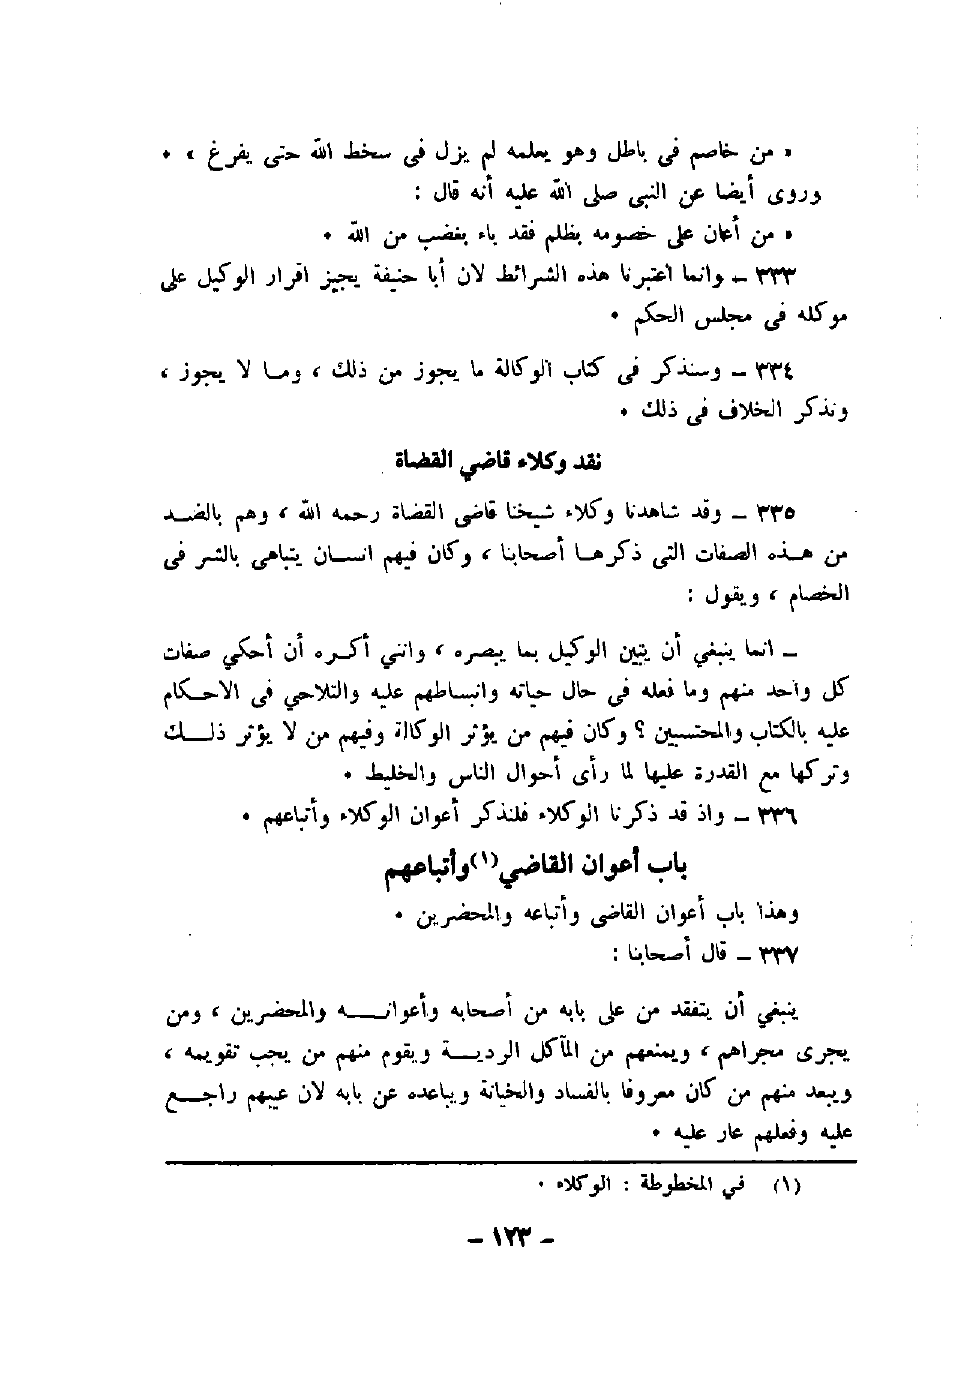 « من خاصم فى باطل وهو يعلمه لم يزل فى سخط الله حتى يفرغ » ٠
وروى أيضا عن النبى صلى الله عليه أنه قال :
« من أعان على خصومه بظلم فقد باء بغضب من الله ٠
٣٣٣ ـ وانما اعتبرنا هذه الشرائط لان أبا حنيفة يجيز اقرار الوكيل على
موكله فى مجلس الحكم ٠
٣٣٤ ـ وسنذكر فى كتاب الوكالة ما يجوز من ذلك ، وما لا يجوز ،
ونذكر الخلاف فى ذلك ٠
نقد وكلاء قاضي القضاة
٣٣٥ ـ وقد شاهدنا وكلاء شيخنا قاضى القضاة رحمه الله ، وهم بالضد
من هذه الصفات التى ذكرها أصحابنا ، وكان فيهم انسان يتباهى بالشر فى
الخصام ، ويقول :
ـ انما ينبغي أن يتبين الوكيل بما يبصره ، وانني أكره أن أحكي صفات
كل واحد منهم وما فعله فى حال حياته وانبساطهم عليه والتلاحي فى الاحكام
عليه بالكتاب والمحتسبين ؟ وكان فيهم من يؤثر الوكالة وفيهم من لا يؤثر ذلك
وتركها مع القدرة عليها لما رأى أحوال الناس والخليط ٠
٣٣٦ ـ واذ قد ذكرنا الوكلاء فلنذكر أعوان الوكلاء وأتباعهم ٠
باب أعوان القاضي(١)وأتباعهم
وهذا باب أعوان القاضى وأتباعه والمحضرين ٠
٣٣٧ ـ قال أصحابنا :
ينبغي أن يتفقد من على بابه من أصحابه وأعوانه والمحضرين ، ومن
يجرى مجراهم ، ويمنعهم من المآكل الردية ويقوم منهم من يجب تقويمه ،
ويبعد منهم من كان معروفا بالفساد والخيانة ويباعده عن بابه لان عيبهم راجع
عليه وفعلهم عار عليه ٠
(١) في المخطوطة : الوكلاء ٠
ـ ١٢٣ ـ